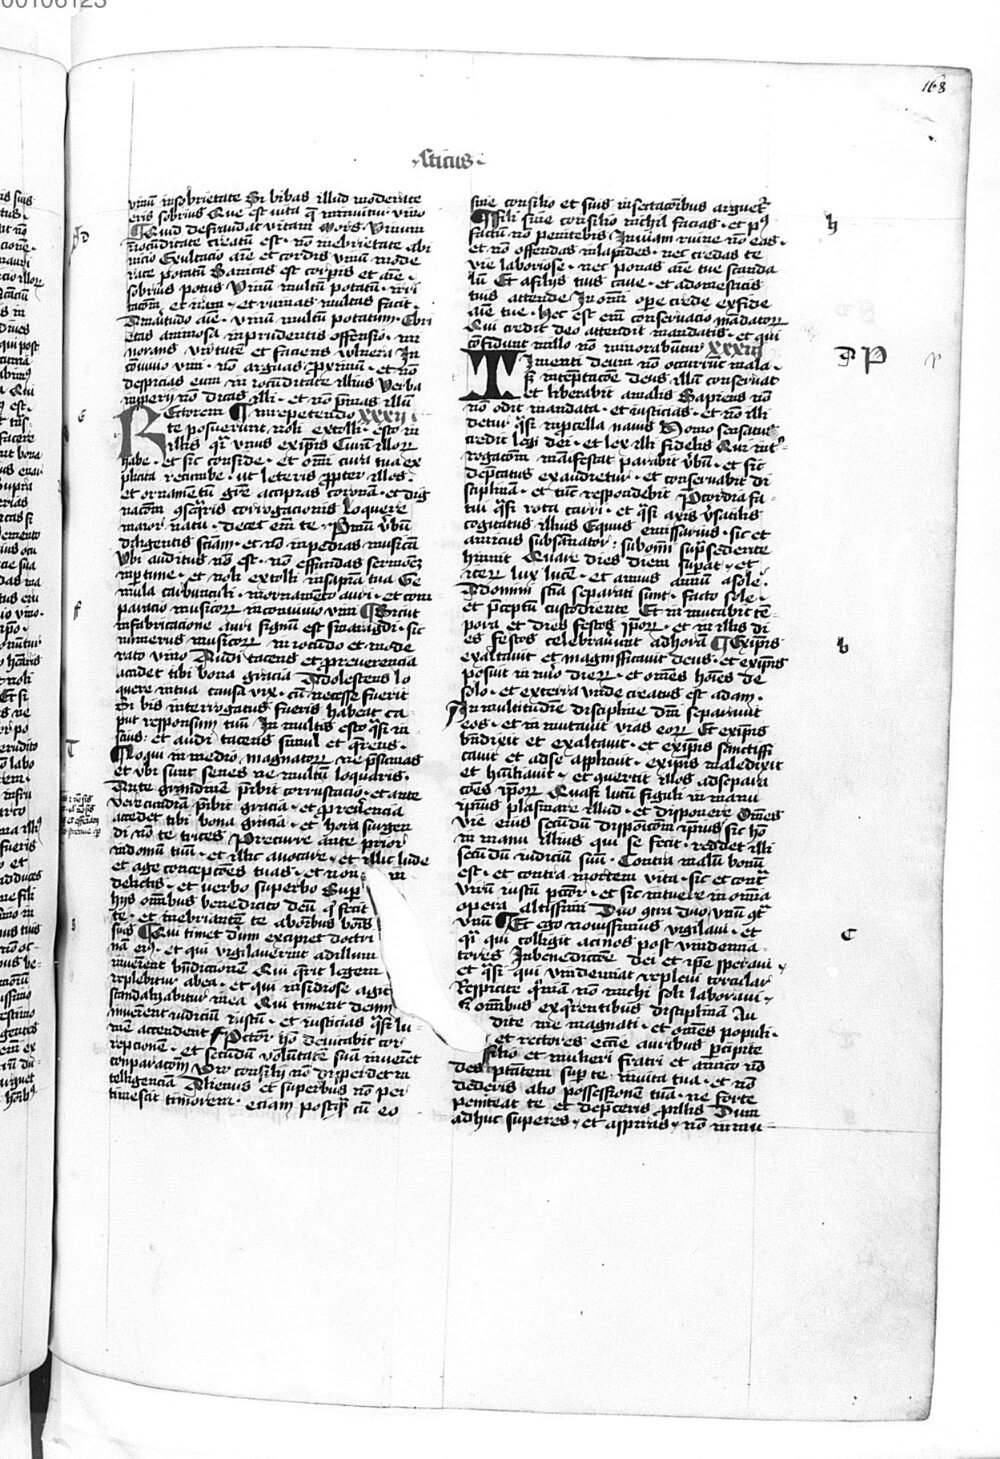 168
sticus
vinū insobrietate Si bibas illud moderate
eris sobrius Que est vita q̄ minuitur vino
¶ Quid defraudat vitam Mors Vinum
iniocunditate creatū est · nō inebrietate abi
nicio Exultacio aīe et cordis vinū mode
rate potatū Sanitas est corpīs et aīe ·
sobrius potus Vinum multū potatū · irri
tacōm et irām · et ruinas multas facit ·
Amaritudo aīe · vinum multū potatum · Ebri
etas animosa inprudentis offensio · mi
norans virtutē et faciens vulnera In
conuio vini · nō arguas pxīmū · et nō
despicias eum in iocunditate illius Verba
inpperij nō dicas illi · et nō pmas illū
Rectorem ¶ inrepetendo xxxij
te posuerunt noli extolli · esto in
illis qͣi vnus exipīs Curā illoꝝ
habe · et sic conside · et omī cura tua ex
plicita recumbe · ut leteris ꝓpter illos ·
et ornamentū grē accipias coronam · et dig
nacōm 9seqͣris corrogacionis Loquere
maior natu · decet enī te · Pmū v̄bū
diligentis sciam · et nō inpedias musicū
Vbi auditus nō est · nō effundas sermōez
inportune · et noli extolli insapia tua Ge
mula carbunculi · inornamento auri · et com
paracio musicoꝝ inconuiuio vini ¶ Sicut
infabricacione auri signū est smaragdi · sic
numerus musicoꝝ in iocūdo et mode
rato vino Audi tacens et preuerencia
accidet tibi bona gracia Adolescens lo
quere intua causa vix · cū necesse fuerit
Si bis interrogatus fueris habeat ca
put responsum tuū In multis esto qͣsi in
scius · et audi tacens simul et qͣrens ·
¶ Loqui in medio magnatoꝝ ne psumas
et vbi sunt senes ne multū loquaris ·
Ante grandinē pibit corruscatio · et ante
verecundia pibit gracia · et preuerencia
accedet tibi bona gracia · et hora surgen
di nō te trices Precurre ante prior
indomū tuā · et illic auocare · et illic lude
et age concepcōes tuas · et non in
delictis · et verbo superbo Sup
hijs omībus benedicito deū q̄ fecit
te · et inebriantē te abōibus bonis
suis ¶ Qui timet dnm excipiet doctri
nā eiꝰ · et qui vigilauerint adillum
inuenient bndictionē Qui qͣrit legem
replebitur abea · et qui insidiose agit
scandalizabitur inea Qui timent deum
inuenient iudiciū iustū · et iusticias qͣsi lu
mē accendent Pctor hō deuitabit cor
repcionē · et secundū volūtatē suā inueniet
comparacōm Vir consilij nō disperdet in
telligenciā Alienus et superbus nō per
timescit timorem · eciam postqͣ cū eo
sine consilio et suis insectacōibus arguetᷣ
¶ Fili sine consilio nichil facias · et pꝰ
factū nō penitebis Inuiam ruine nō eas ·
et nō offendas inlapides · nec credas te
vie laboriose · nec ponas aīe tue scanda
lū Et afilijs tuis caue · et adomesticis
tuis attende In omī ope crede exfide
aīe tue · hec est enī conseruacio mādatoꝝ
Qui credit deo attendit mandatis · et qui
confidunt inillo nō minorabuntur xxxiij
Timenti deum nō occurrūt mala ·
s̄ intēptacōe deus illū conseruat
et liberabit amalis Sapiens nō
nō odit mandata · et iusticias · et nō illi
detur qͣsi inpcella nauis Homo sensatus
credit legi dei · et lex illi fidelis Qui int
rogacōm manifestat parabit v̄bū · et sic
depcatus exaudietur · et conseruabit di
sciplinā · et tūc respondebit Pcordia fa
tui qͣsi rota carri · et qͣsi axis v̄satilis
cogitatus illius Equus emissarius · sic et
amicus subsānator · subomī supsedente
hinnit Quare dies diem supat · et
iterū lux lucē · et annus annū asole ·
Adomini sciā separati sunt · facto sole ·
et pceptū custodiente Et in mutabit tē
pora et dies festos ipoꝝ · et in illis di
es festos celebrauerunt adhorā ¶ Exipīs
exaltauit et magnificauit deus · et exipīs
posuit in nūo dierū · et omēs hoīes de
solo · et exterra vnde creatus est adam ·
In multitudine discipline dnī separauit
eos · et in mutauit vias eoꝝ Et exipīs
bndixit et exaltauit · et exipīs sanctiffi
cauit et adse applicuit · exipīs maledixit
et hūiliauit · et 9uertit illos adsepara
cōes ipoꝝ Quasi lutū figuli in manu
ipius plasmare illud · et disponere Omēs
vie eius secūdū disposicōem ipius sic hō
in manu illius qui se fecit · reddet illi
secūdū iudiciū suū · Contra malū bonū
est · et contra mortem vita · sic et contͣ
virū iustū pctor · et sic intuere in omīa
opera altissimi Duo 9tra duo vnū 9tͣ
vnū ¶ Et ego nouissimus vigilaui · et
qͣsi qui colligit acinos post vindemia
tores Inbenedictōe dei et ipe speraui ·
et qͣsi qui vindemiat repleui torcular
Respicite qͣmā nō michi soli laboraui ·
s̄ omībus exqͣrentibus disciplinā Au
dite me magnati · et omēs populi ·
et rectores eccīe auribus pcipite
Filio et mulieri fratri et amico nō
des ptātem sup te · inuita tua · et nō
dederis alio possessionē tuā · ne forte
peniteat te et depceris pillis Dum
adhuc superes · et aspiras · nō inmu
D
h
P
f
b
C